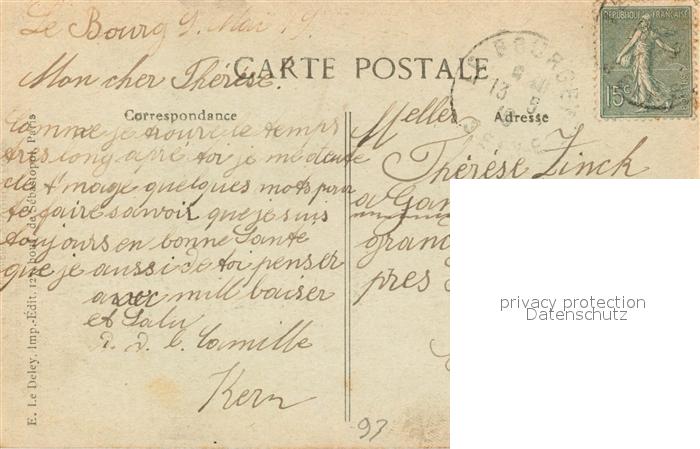 Le Bourg 9. Mai 19.
Mon cher Thérèse.
CARTE POSTALE
Correspondance
Adresse
Comme je trouve le temps
tres long apré toi je me
de t'
quelques mots pour
te faire savoir que je suis
toujours en bonne Sante
que je aussi de toi penser
avec mill baiser
et Salu
d. d. l. Camille
Kern
Melle
Thérèse Zinck
a
gran
pres
RÉPUBLIQUE FRANÇAISE
15c
LE BOURGET
13
5
E. Le Deley, Imp.-Édit. 127, boul. de Sébastopol, Paris
93
privacy protection
Datenschutz